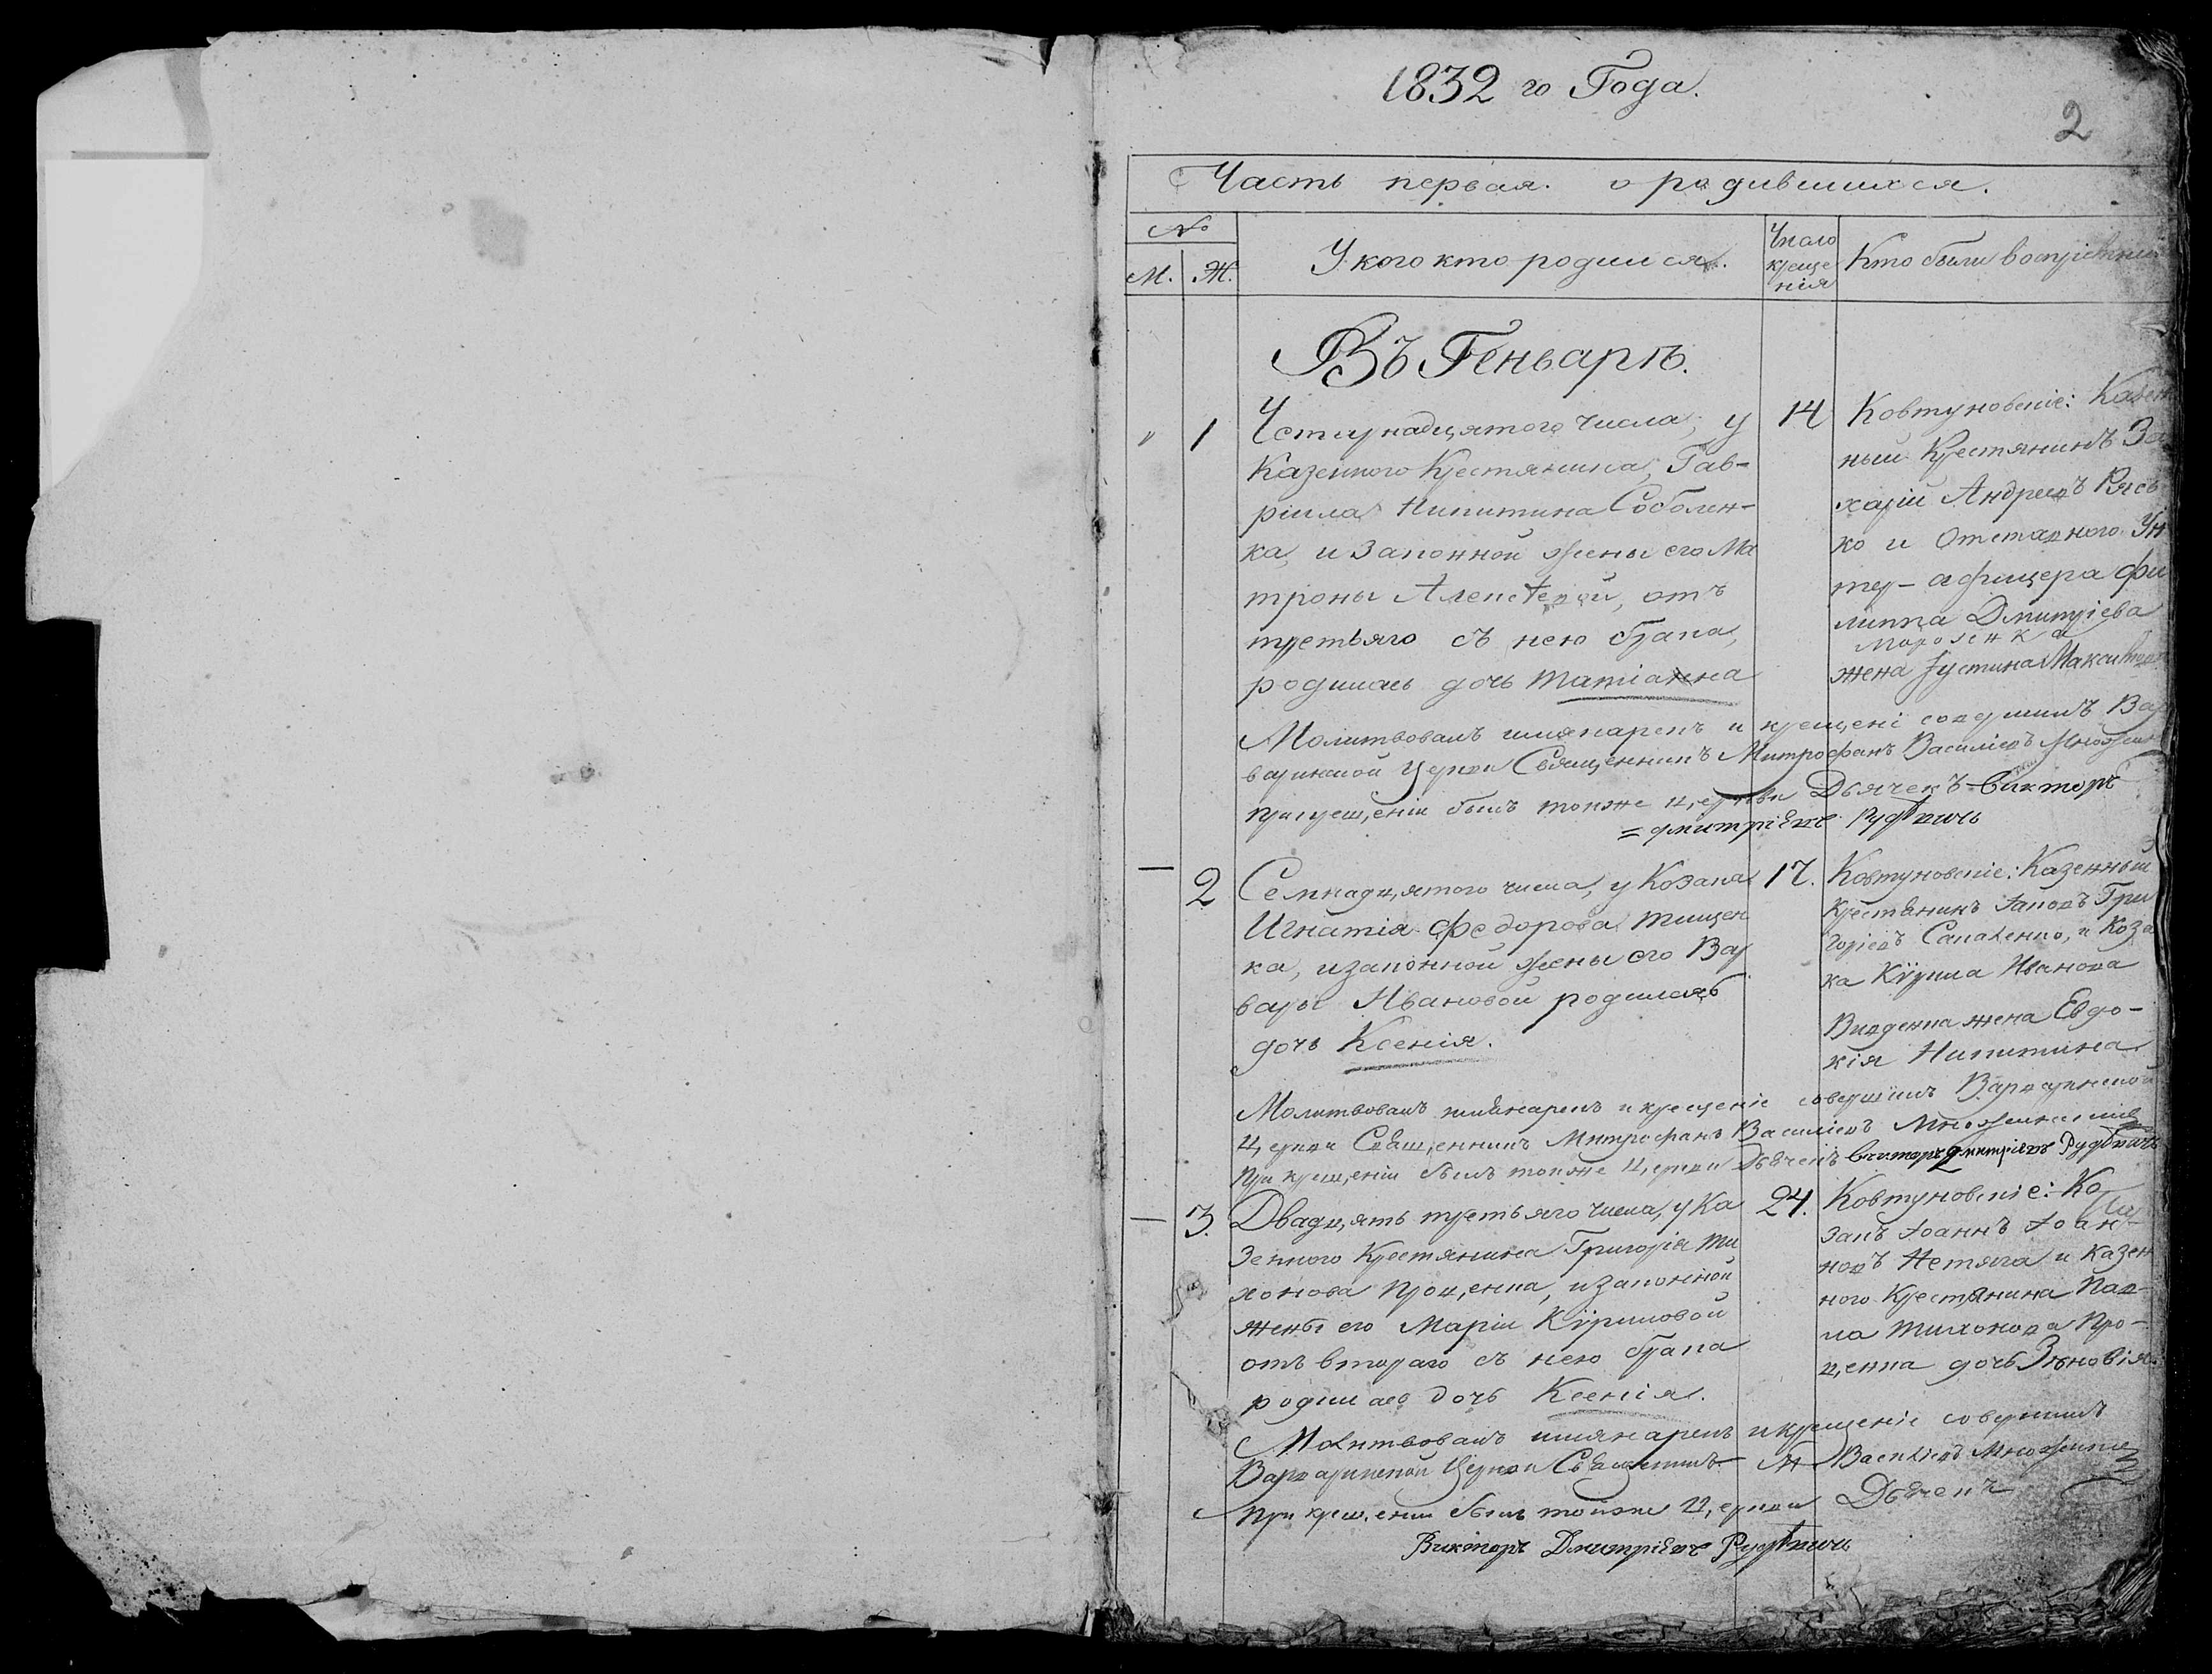 1832 го Года.
2
Часть первая. о родившихся.
№
М. Ж.
У кого кто родился.
Число
креще
нія
Кто были воспріемни
Въ Генварѣ.
" 1
Четырнадцятого числа, у
Казенного Крестянина, Гав-
ріила Никитина Соболен-
ка, и законной жены его Ма
троны Алексѣевой, отъ
третьяго съ нею брака,
родилась дочь Татіанна
14
Ковтуновскіе: Казен
ный Крестянинъ За
харій Андреевъ
ко и Отставного Ун
тер-афицера Фи
липпа Дмитріева
жена Іустина Максимова
Молитвовалъ имянарекъ и крещені совершилъ Вар
варинской Церкви Священникъ Митрофанъ Василіевъ
при крещеніи былъ тойже церкви Дьячекъ Викторъ
= Дмитріевъ
— 2
Семнадцятого числа, у Козака
Игнатія Федорова Тищен
ка, и законной жены его Вар
вары Ивановой родилась
дочь Ксенія.
17.
Ковтуновскіе: Казенный
Крестянинъ Іаковъ Гри
горіевъ и Коза
ка Кѵрила Иванова
жена Евдо-
кія Никитина
Молитвовалъ имянарекъ и крещеніе совершилъ Варваринской
церкви Священникъ Митрофанъ Василіевъ
при крещеніи былъ тойже церкви Дьячекъ Викторъ Дмитріевъ
— 3.
Двадцять третьяго числа, у Ка
зенного Крестянина Григорія Ти
хонова Проценка, и законной
жены его Маріи Кѵриловой
отъ втораго съ нею брака
родилась дочь Ксенія.
24.
Ковтуновскіе: Ко
закъ Іоаннъ Іоан-
новъ Нетяга и Казен
ного Крестянина Пав-
ла Тихонова Про-
ценка дочь Зѣновія.
Молитвовалъ имянарекъ и крещеніе совершилъ
Варваринской Церкви Священникъ М Василіевъ
При крещеніи былъ тойже церкви Дьячекъ
Викторъ Дмитріевъ